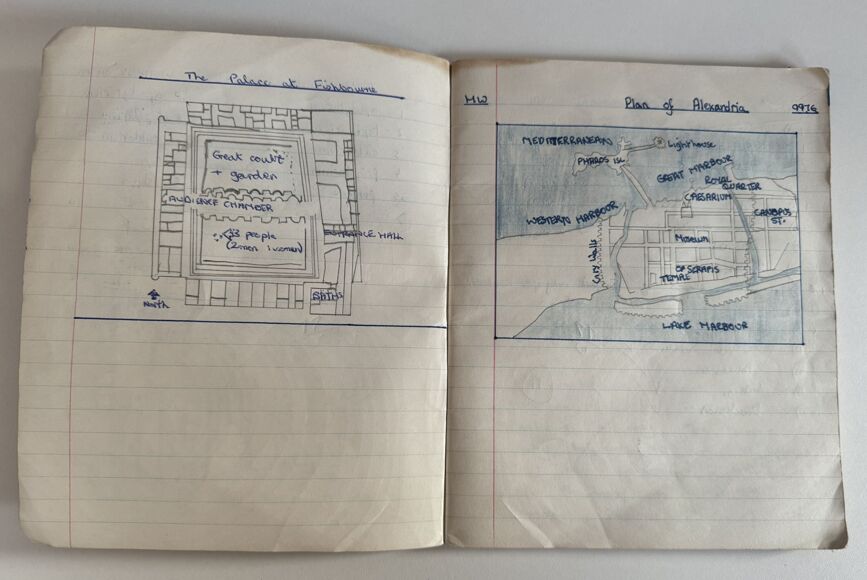 The Palace at Fishbourne
Great court
+ garden
AUDIENCE CHAMBER
3 people
(2 men 1 women)
ENTRANCE HALL
BATHS
North
HW
Plan of Alexandria
MEDITERRANEAN
Lighthouse
PHAROS ISL.
GREAT HARBOUR
ROYAL
QUARTER
CAESARIUM
WESTERN HARBOUR
CANOPUS
ST.
Museum
City Walls
OF SERAPIS
TEMPLE
LAKE HARBOUR